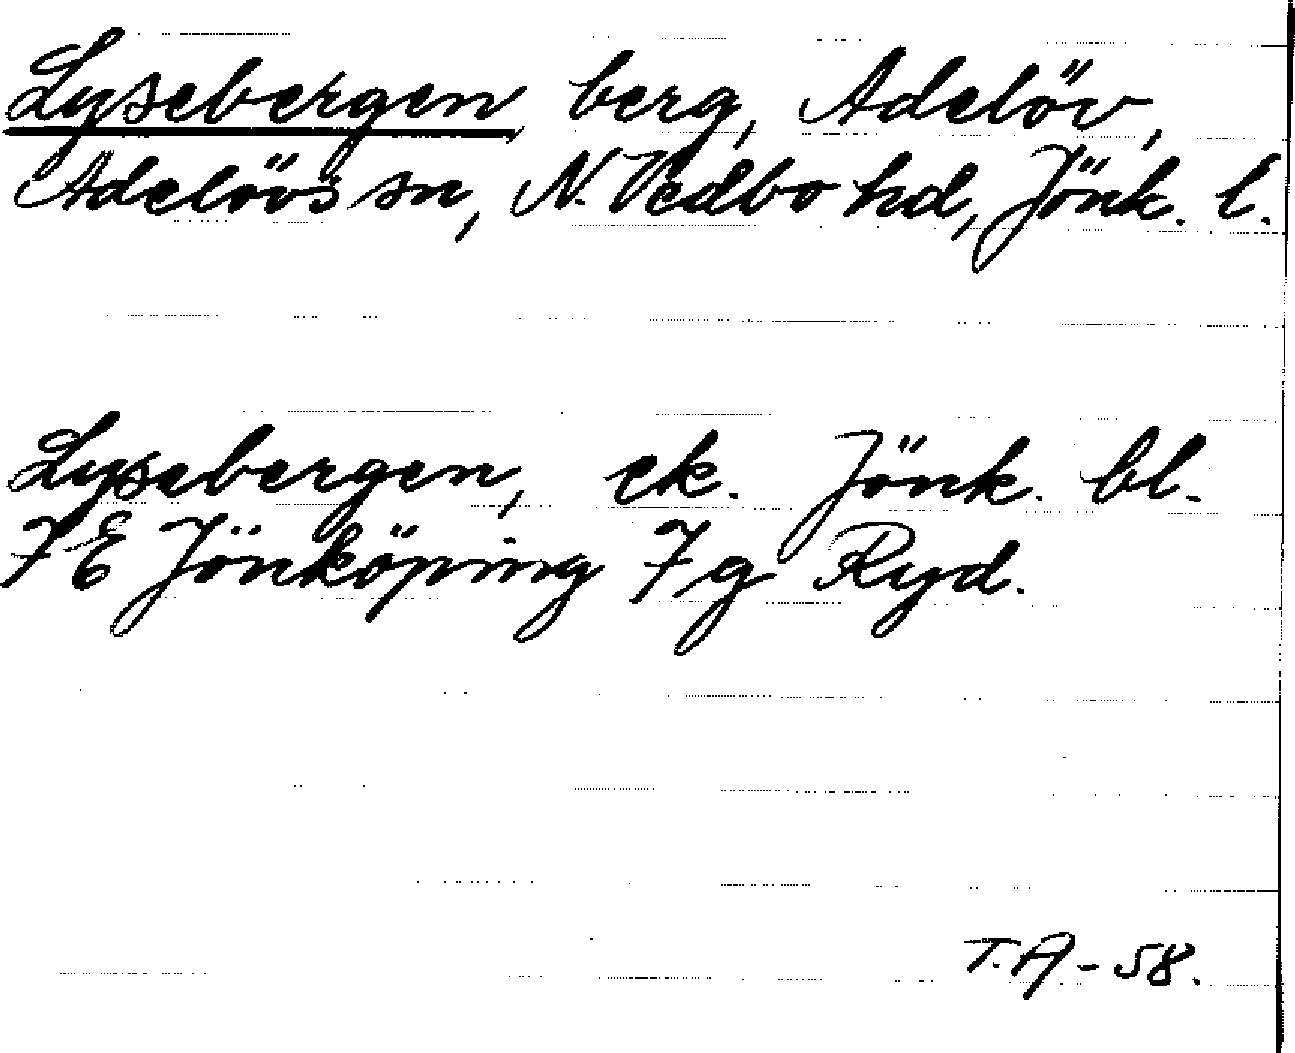 Lysebergen berg, Adelöv,
Adelövs sn, N. Vedbo hd, Jönk. l.
Lysebergen, ek. Jönk. bl.
7 E Jönköping 7 g Ryd.
T. A - 58.